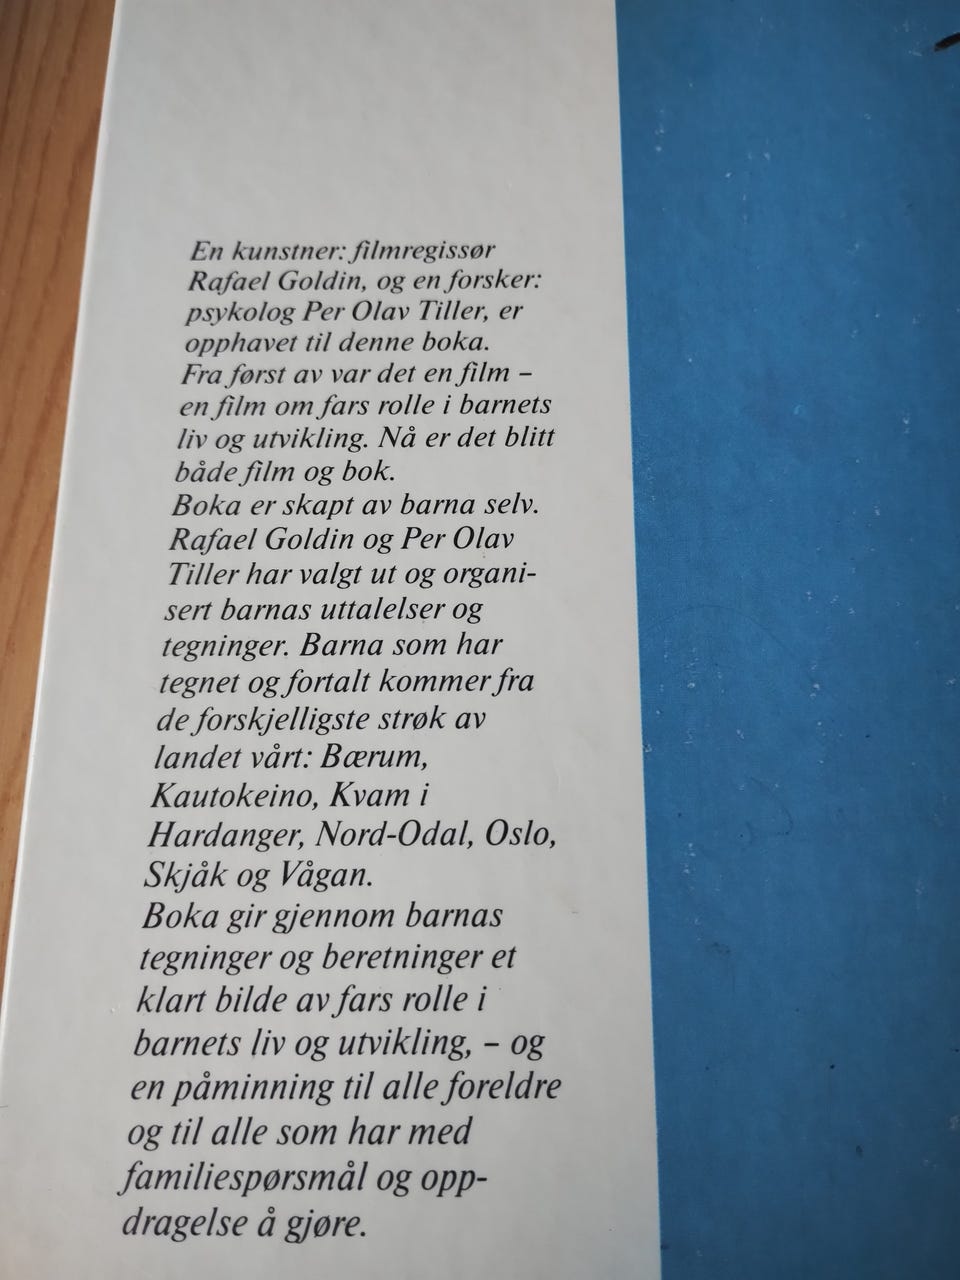 En kunstner: filmregissør
Rafael Goldin, og en forsker:
psykolog Per Olav Tiller, er
opphavet til denne boka.
Fra først av var det en film –
en film om fars rolle i barnets
liv og utvikling. Nå er det blitt
både film og bok.
Boka er skapt av barna selv.
Rafael Goldin og Per Olav
Tiller har valgt ut og organi-
sert barnas uttalelser og
tegninger. Barna som har
tegnet og fortalt kommer fra
de forskjelligste strøk av
landet vårt: Bærum,
Kautokeino, Kvam i
Hardanger, Nord-Odal, Oslo,
Skjåk og Vågan.
Boka gir gjennom barnas
tegninger og beretninger et
klart bilde av fars rolle i
barnets liv og utvikling, – og
en påminning til alle foreldre
og til alle som har med
familiespørsmål og opp-
dragelse å gjøre.